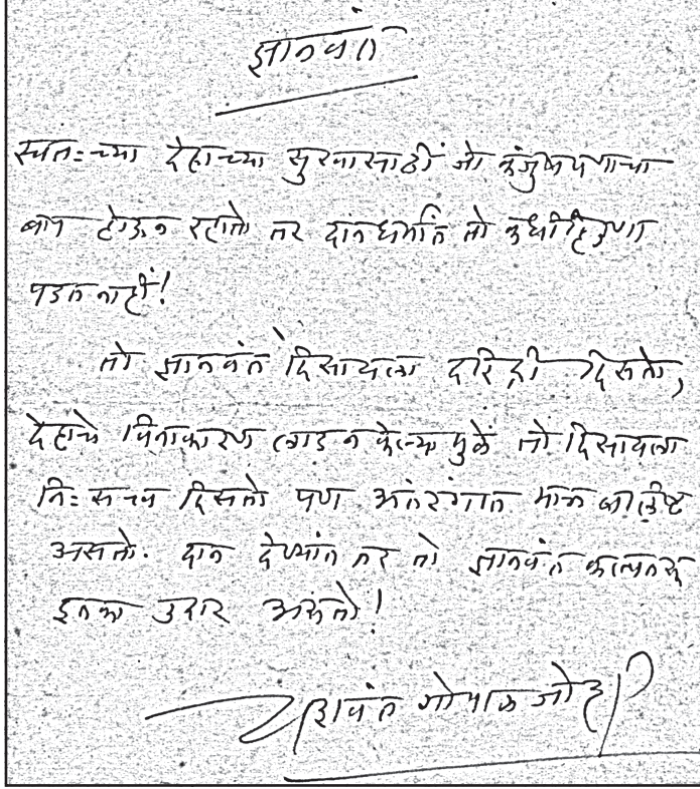 ज्ञानवंत
स्वतःच्या देहाच्या सुखासाठीं जो कंजुषपणाचा
बाप होऊन रहातो तर दानधर्मात तो कधीहि उणा
पडत नाहीं!
तो ज्ञानवंत दिसायला दरिद्री दिसतो,
देहाचे विनाकारण लाड न केल्यामुळें तो दिसायला
निःसत्व दिसतो पण अंतरंगात मात्र बलिष्ट
असतो. दान देण्यांत तर तो ज्ञानवंत कल्पतरू
इतका उदार असतो!
यशवंत गोपाळ जोशी